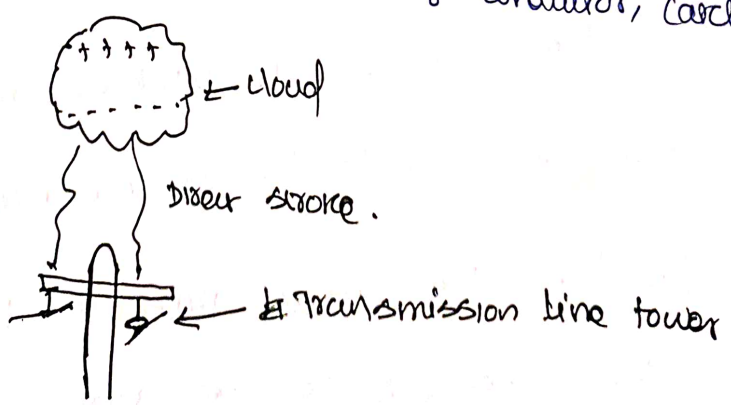 + + + +
- - - - - -
cloud
Direct stroke.
Transmission line tower